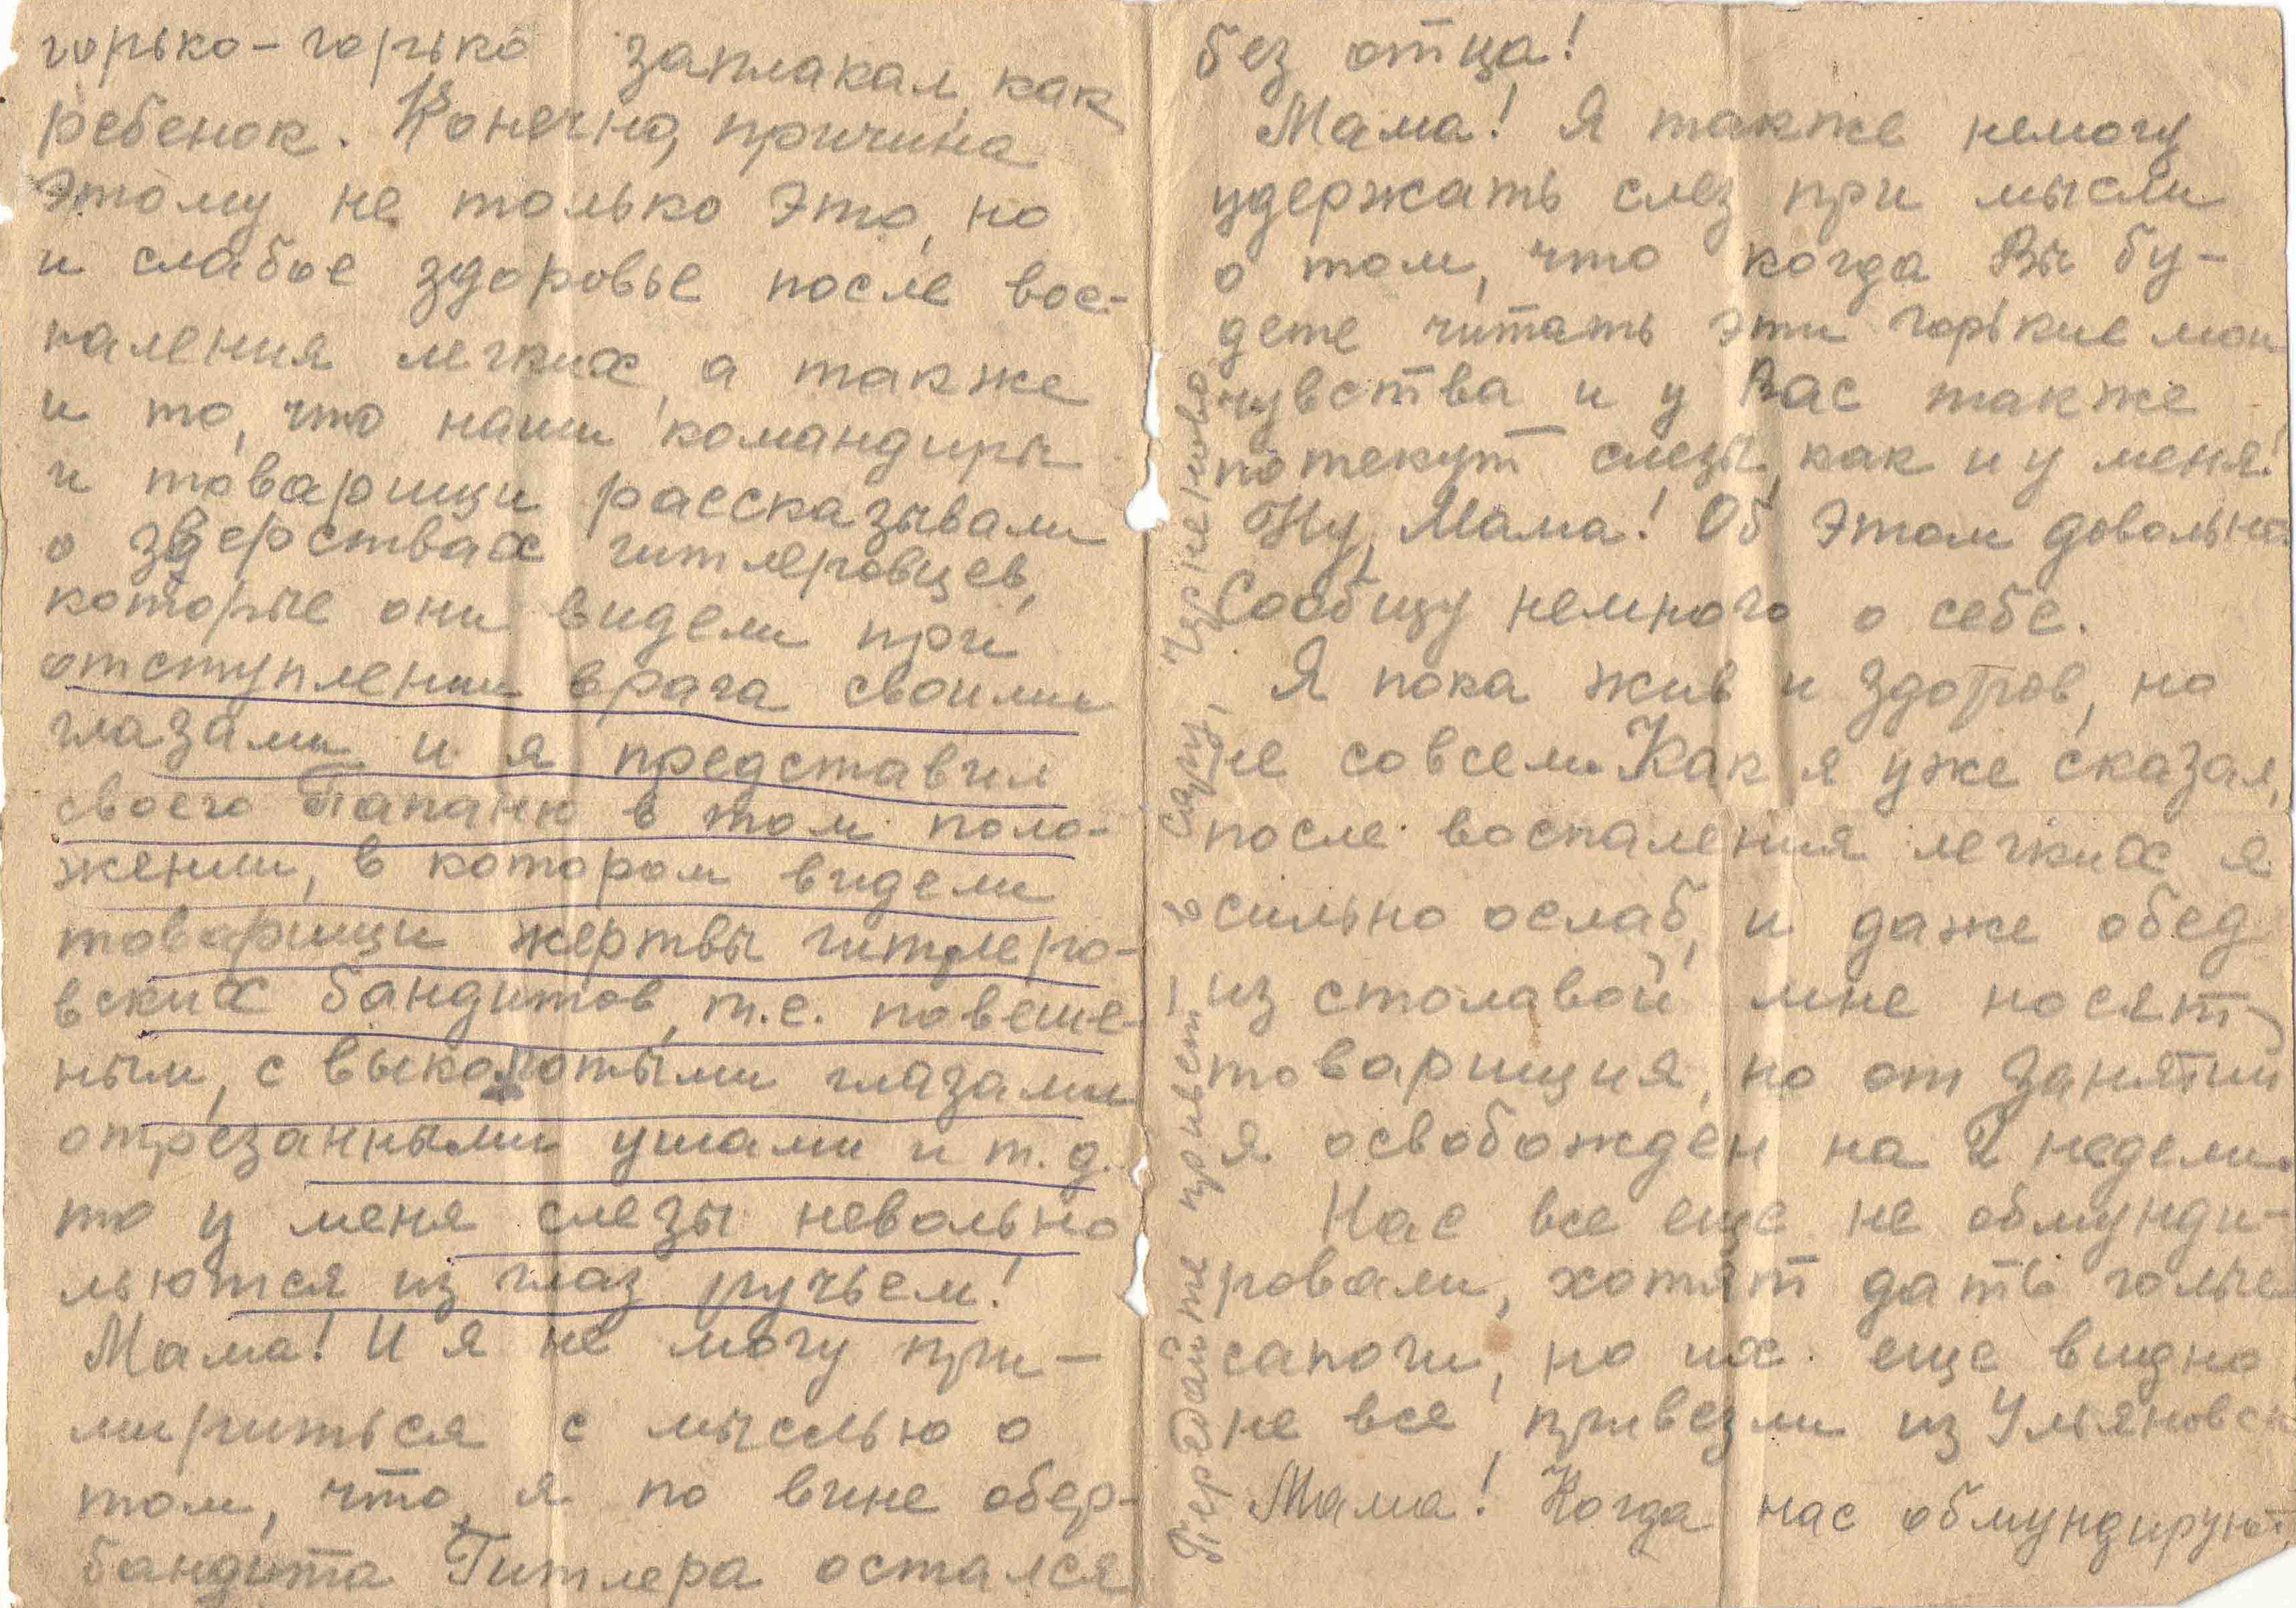 горько-горько заплакал, как
ребенок. Конечно, причина
этому не только это, но
и слабое здоровье после вос-
паления легких, а также
и то, что наши командиры
и товарищи рассказывали
о зверствах гитлеровцев,
которые они видели при
отступлении врага своими
глазами и я представил
своего Папаню в том поло-
жении, в котором видели
товарищи жертвы гитлеро-
вских бандитов, т.е. повеше-
ным, с выколотыми глазами
отрезанными ушами и т.д.
то у меня слезы невольно
льются из глаз ручьем!
Мама! И я не могу при-
мириться с мыслью о
том, что я по вине обер-
бандита Гитлера остался
без отца!
Мама! Я также немогу
удержать слез при мысли
о том, что когда Вы бу-
дете читать эти горькие мои
чувства и у Вас также
потекут слезы, как и у меня!
Ну, Мама! Об этом довольно.
Сообщу немного о себе.
Я пока жив и здоров, но
не совсем. Как я уже сказал,
после воспаления легких я
сильно ослаб, и даже обед
из столавой мне носят
товарищия, но от занятий
я освобожден на 2 недели.
Нас все еще не обмунди-
ровали, хотят дать
сапоги, но их еще видно
не все привезли из Ульяновск
Мама! Когда нас обмундируют
Передайте привет в Сару, Чурненово